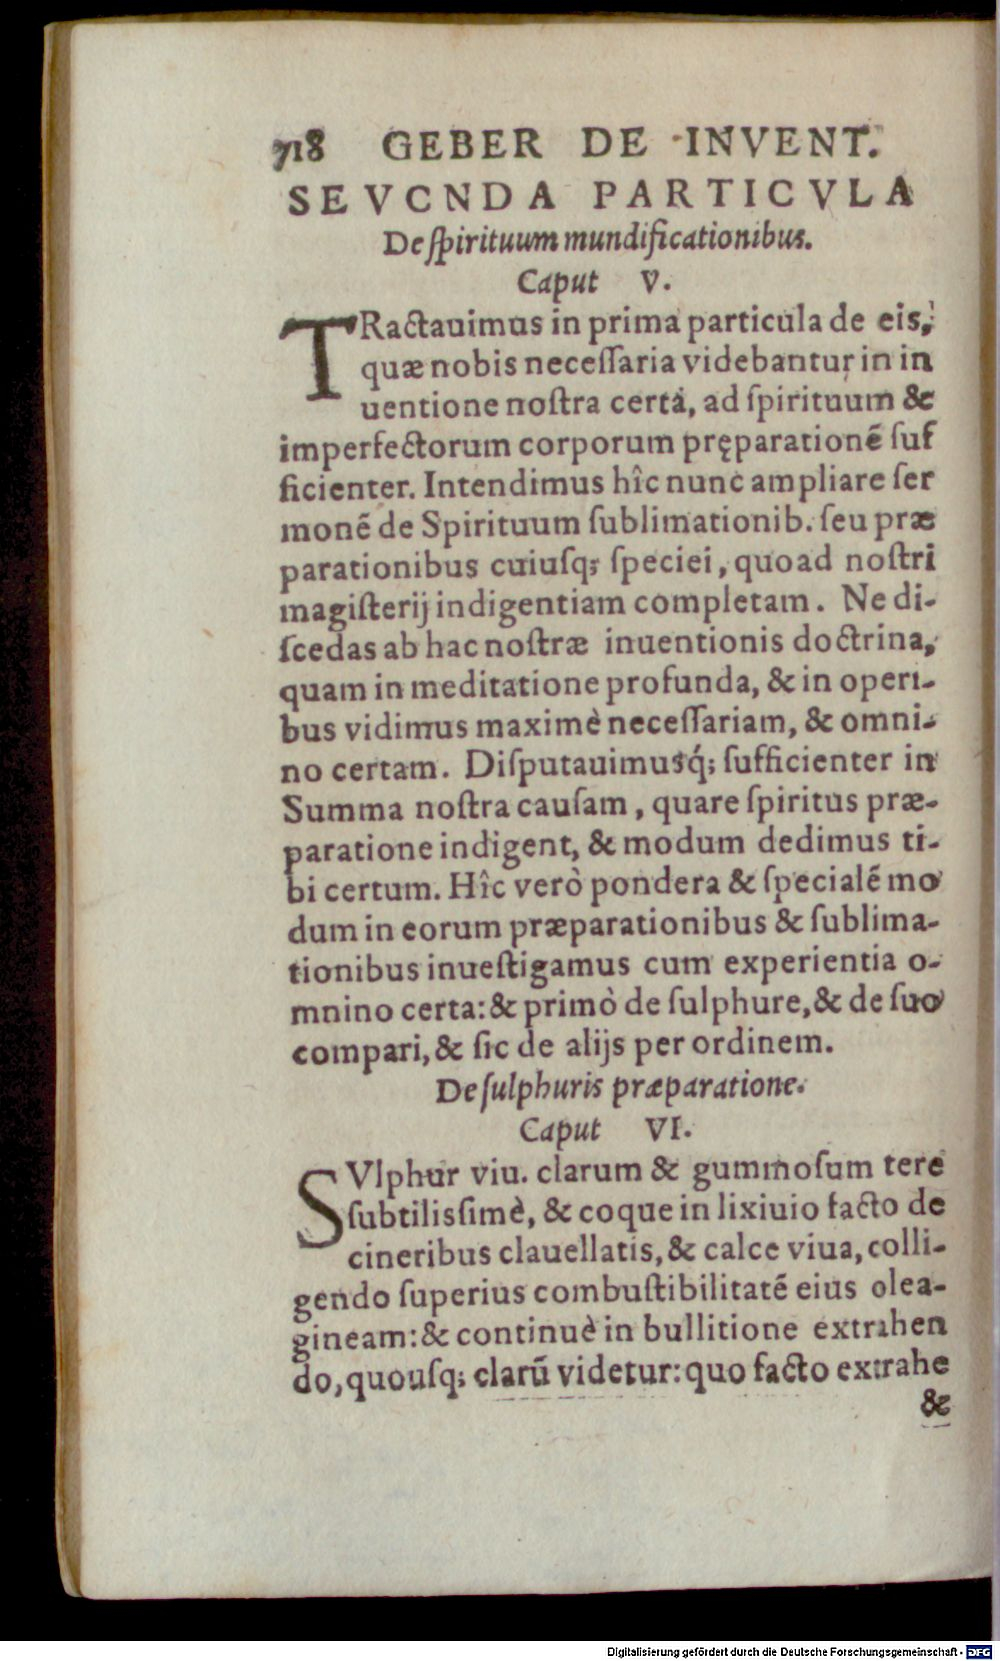 718 GEBER DE INVENT.
SEVCNDA PARTICVLA
De ſpirituum mundificationibus.
Caput V.
TRactauimus in prima particula de eis,
quæ nobis neceſſaria videbantur in in
uentione noſtra certa, ad ſpirituum &
imperfectorum corporum pręparationē ſuf
ficienter. Intendimus hîc nunc ampliare ſer
monē de Spirituum ſublimationib. ſeu præ
parationibus cuiusq; ſpeciei, quoad noſtri
magiſterij indigentiam completam. Ne di-
ſcedas ab hac noſtræ inuentionis doctrina,
quam in meditatione profunda, & in operi-
bus vidimus maximè neceſſariam, & omni-
no certam. Diſputauimusq́; ſufficienter in
Summa noſtra cauſam, quare ſpiritus præ-
paratione indigent, & modum dedimus ti-
bi certum. Hîc verò pondera & ſpecialē mo
dum in eorum præparationibus & ſublima-
tionibus inueſtigamus cum experientia o-
mnino certa: & primò de ſulphure, & de ſuo
compari, & ſic de alijs per ordinem.
De ſulphuris præparatione.
Caput VI.
SVlphur viu. clarum & gummoſum tere
ſubtiliſsimè, & coque in lixiuio facto de
cineribus clauellatis, & calce viua, colli-
gendo ſuperius combuſtibilitatē eius olea-
gineam: & continuè in bullitione extrahen
do, quouſq; clarū videtur: quo facto extrahe
&
Digitalisierung gefördert durch die Deutsche Forschungsgemeinschaft - DFG